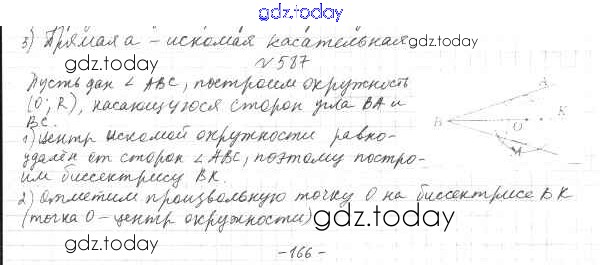 gdz.today
3) Прямая a - искомая касательная
gdz.today
№587
Пусть дан ∠ABC, построим окружность
gdz.today
(O; R), касающуюся сторон угла BA и
BC.
1) Центр искомой окружности равно-
удалён от сторон ∠ABC, поэтому постро-
им биссектрису BK.
2) Отметим произвольную точку O на биссектрисе BK
(точка O - центр окружности)
A
B
O
K
M
gdz.today
gdz.today
gdz.today
-166-